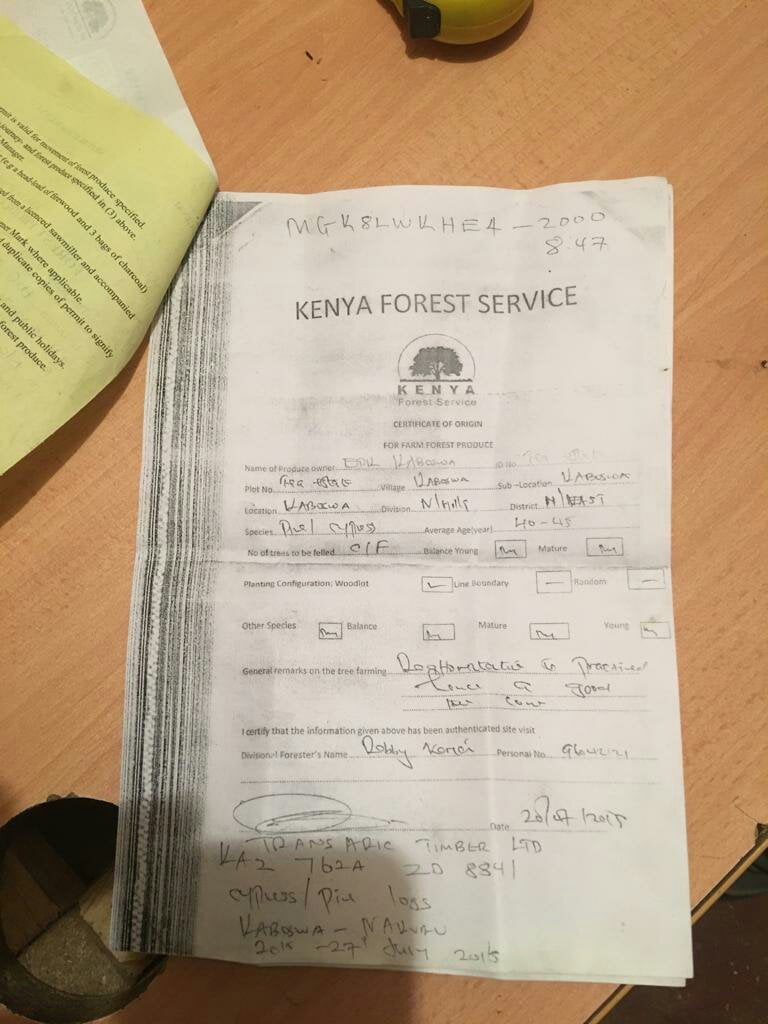 mit is valid for movement of forest produce specified.
journey- and forest produce specified in (3) above.
Manager.
(e.g a head-load of firewood and 3 bags of charcoal)
ed from a licenced sawmiller and accompanied
per Mark where applicable.
d duplicate copies of permit to signify
and public holidays.
forest produce.
MGK8LWKHE4 - 2000
8:47
KENYA FOREST SERVICE
KENYA
Forest Service
CERTIFICATE OF ORIGIN
FOR FARM FOREST PRODUCE
Name of Produce owner KABOSWA ID No
Plot No. Tea estate Village KABOSWA Sub-Location KABOSWA
Location KABOSWA Division N/Hills District N/EAST
Species Pine/ cypress Average Age(year) 40-45
No of trees to be felled C/F Balance Young Mature
Planting Configuration: Woodlot Line Boundary Random
Other Species Balance Mature Young
General remarks on the tree farming is practised
hence a good
I certify that the information given above has been authenticated site visit
Divisional Forester's Name Personal No.
Date
TRANS ARIC TIMBER LTD
762A ZD 8841
cypress/ Pine logs
KABOSWA - NAKURU
27 July 2015